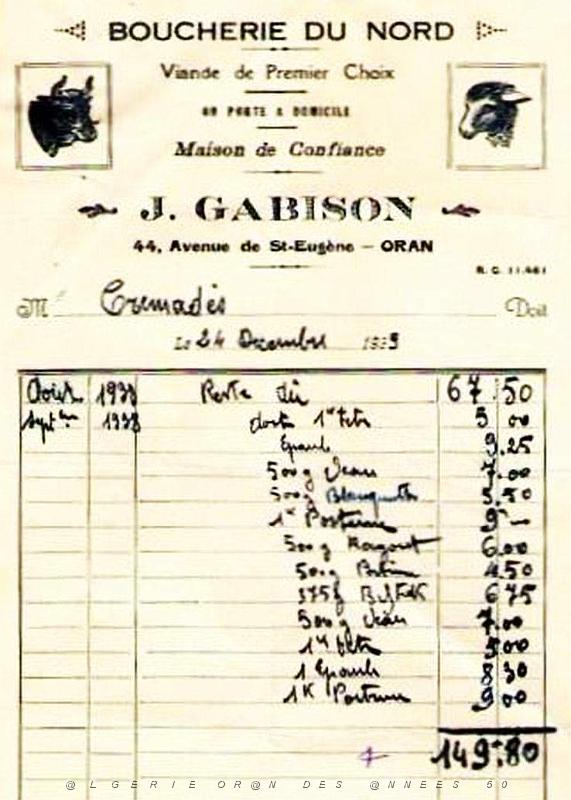 BOUCHERIE DU NORD
Viande de Premier Choix
ON PORTE A DOMICILE
Maison de Confiance
J. GABISON
44, Avenue de St-Eugène — ORAN
R. C. 11.461
M Cremadès Doit
Le 24 Decembre 1939
Août 1938 Reste dû 67.50
Sept 1938 1 tete 5 00
Epaule 9.25
500g Veau 7.00
500g Blanquette 5.50
1K Poitrine 9 —
500g Ragout 6.00
500g 4.50
375g Bifteck 6 75
500g Veau 7.00
1 tete 5.00
1 Epaule 8 30
1K Poitrine 9 00
149.80
@LGERIE OR@N DES @NNEES 50